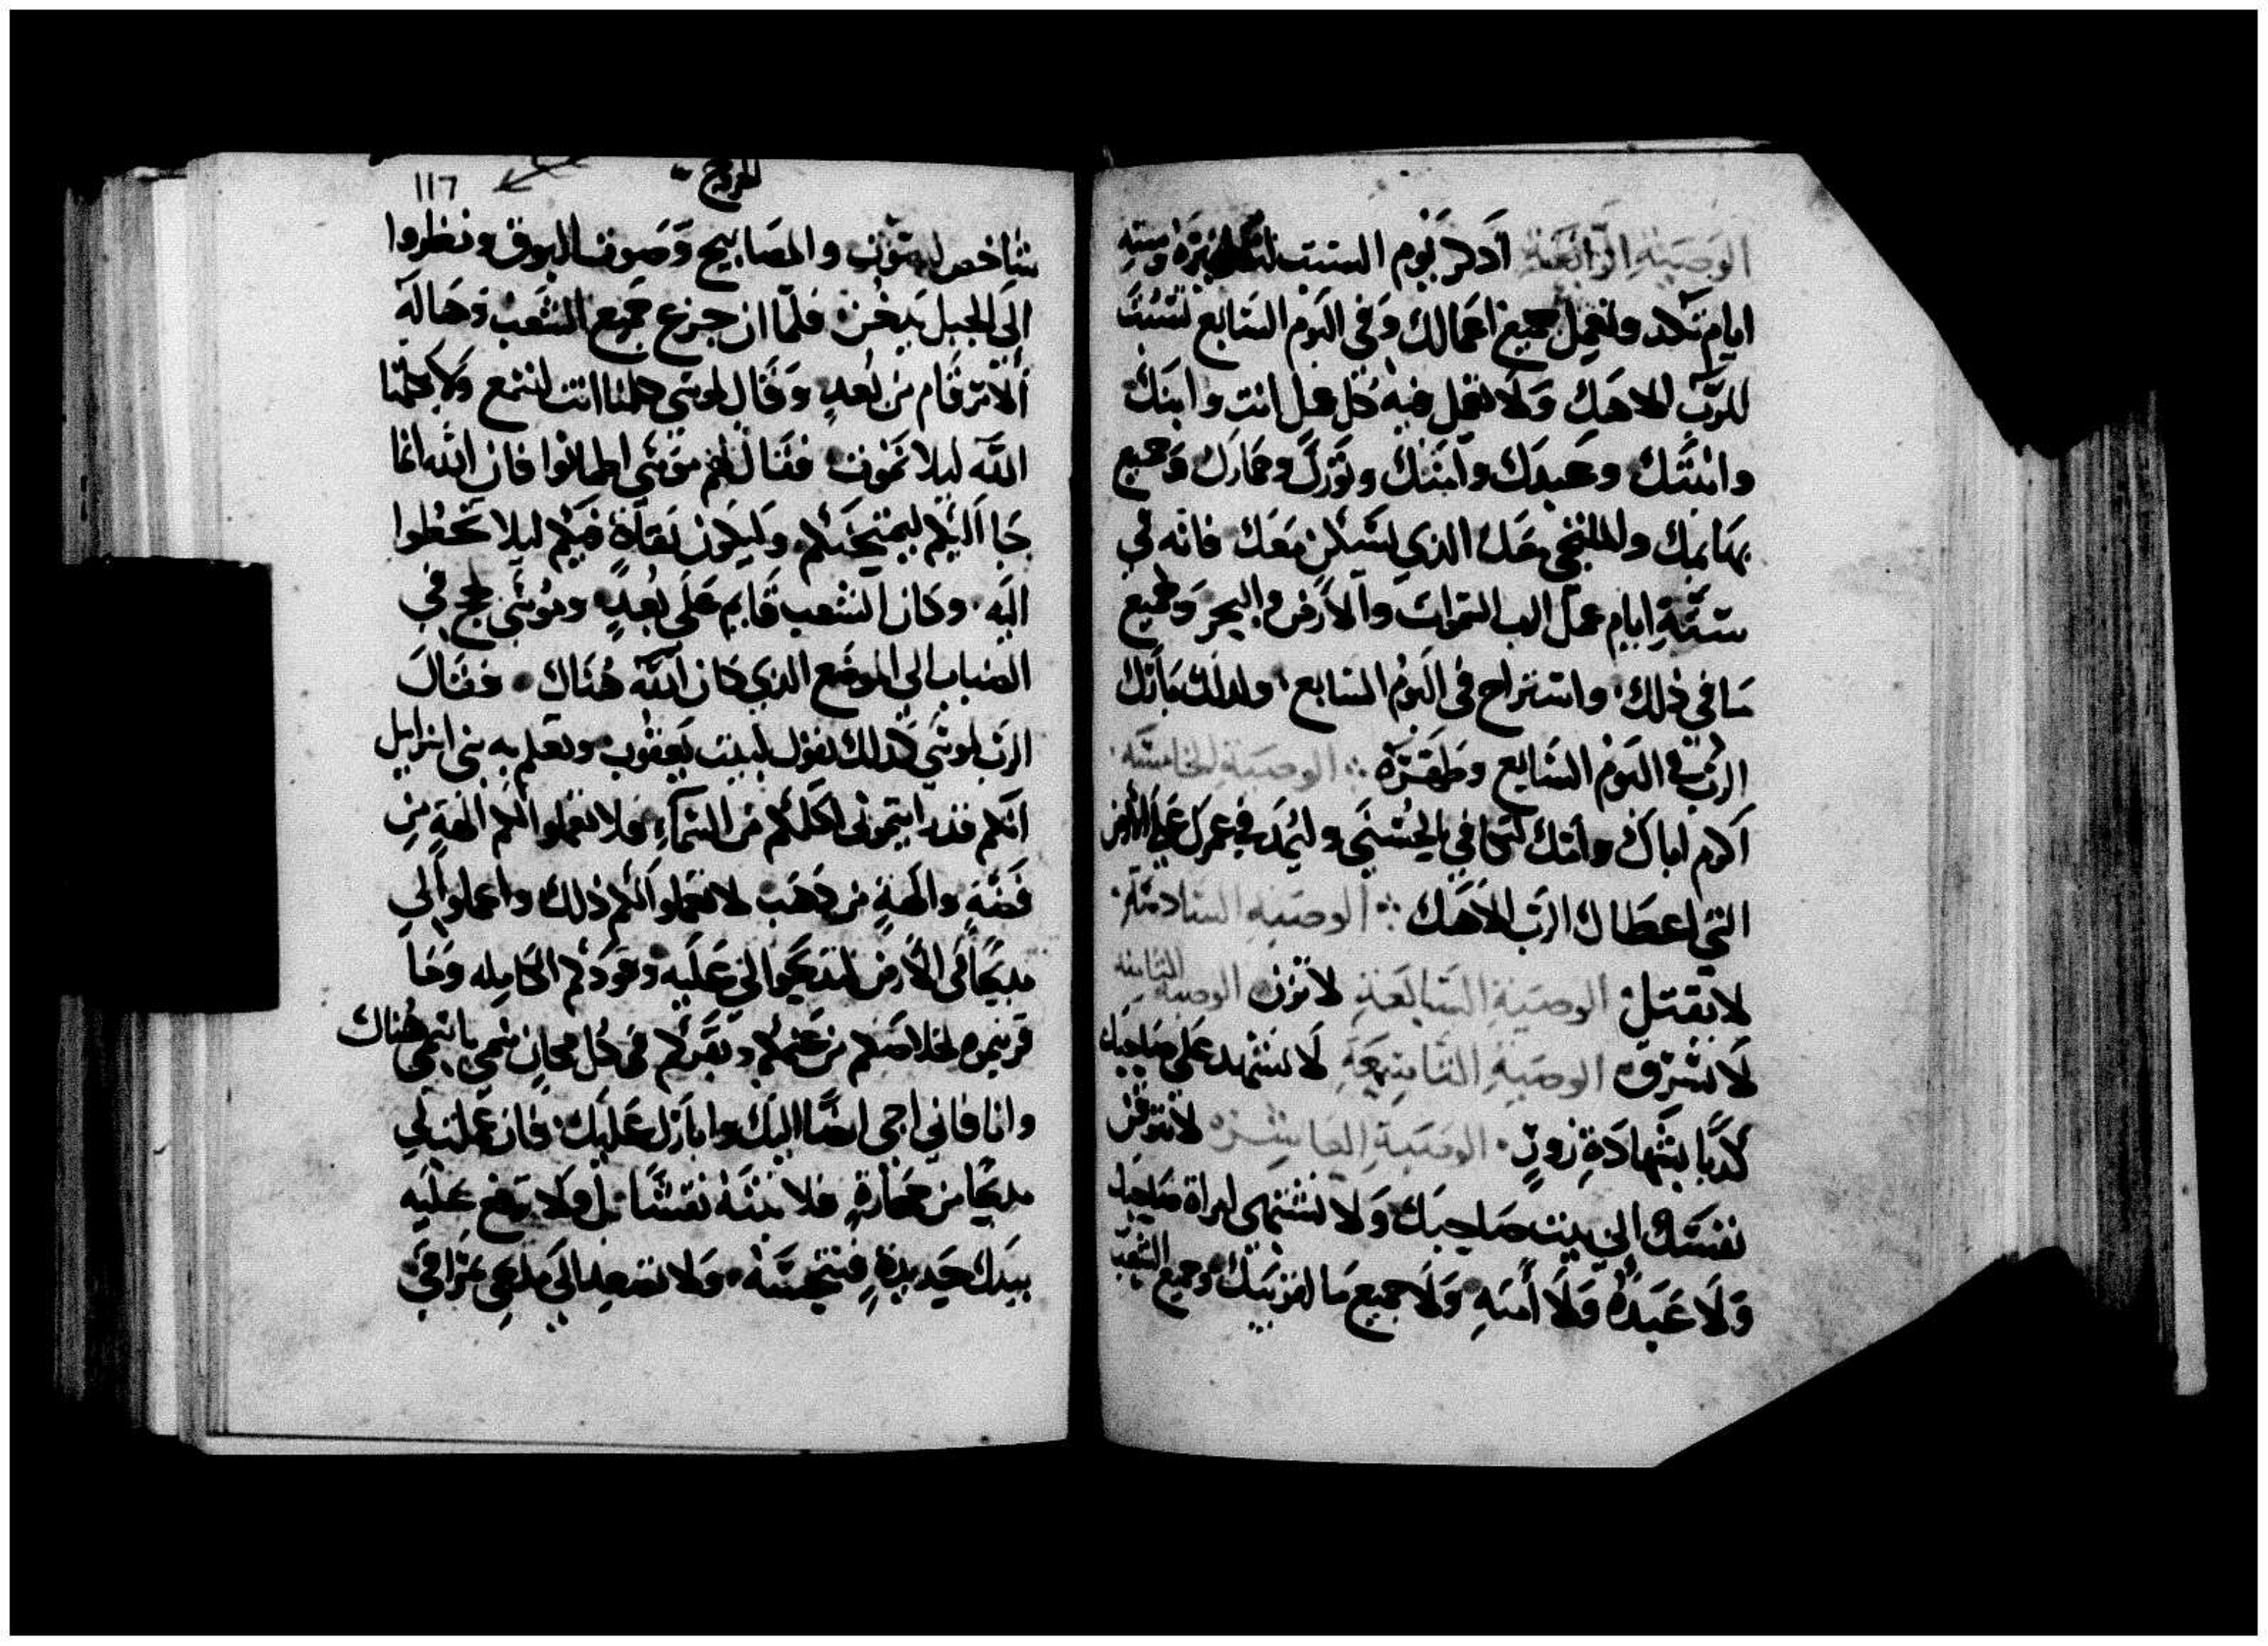 الوصية الرابعة اذكر يوم السبت لتطهره وستة
ايام تكد وتعمل جميع اعمالك وفي اليوم السابع تسبت
للرب الاهك ولا تعمل فيه كل عمل انت وابنك
وابنتك وعبدك وامتك وثورك وحمارك وجميع
بهايمك والملتجي عندك الذي يسكن معك فانه في
ستة ايام عمل الرب السموات والارض والبحر وجميع
ما في ذلك واستراح في اليوم السابع ولذلك بارك
الرب في اليوم السابع وطهره الوصية الخامسة
اكرم اباك وامك لتكافي بالحسنى وليمد في عمرك على الارض
التي اعطاك الرب الاهك الوصية السادسة
لا تقتل الوصية السابعة لا تزن الوصية الثامنة
لا تسرق الوصية التاسعة لا تشهد على صاحبك
كذبا بشهادة زور الوصية العاشرة لا تتوقن
نفسك الي بيت صاحبك ولا تشتهي امراة صاحبك
ولا عبده ولا امته ولا جميع ما لقريبك وجميع الشعب
الخروج
١١٦
شاخص للصوت والمصابيح وصوت البوق ونظروا
الى الجبل يدخن فلما ان جزع جميع الشعب وهاله
الامر قام من بعد وقال لموسى كلمنا انت لنسمع ولا يكلمنا
الله ليلا نموت فقال لهم موسى اطمانوا فان الله انما
جا اليكم ليمتحنكم وليكون تقاة فيكم ليلا تخطوا
اليه وكان الشعب قايم على بعد وموسى لجج في
الضباب الي الموضع الذي كان الله هناك فقال
الرب لموسى كذلك تقول لبيت يعقوب وتعلم به بني اسرايل
انكم قد رايتموني اكلمكم من السماء فلا تعملوا لكم الهة من
فضة والهة من ذهب لا تعملوا لكم ذلك واعملوا لي
مذبحا في الارض لتذبحوا لي عليه وقودكم الكامله وما
قربتموه لخلاصكم من غنمكم وبقركم في كل مكان تسمي باسمي هناك
وانا فاني اجي ايضا اليك وابارك عليك فان عملت لي
مذبحا من حجارة فلا تبنه نقشا بل ولا ترفع عليه
بيدك حديدة فتنجسه ولا تصعد الى مذبحي عزا في